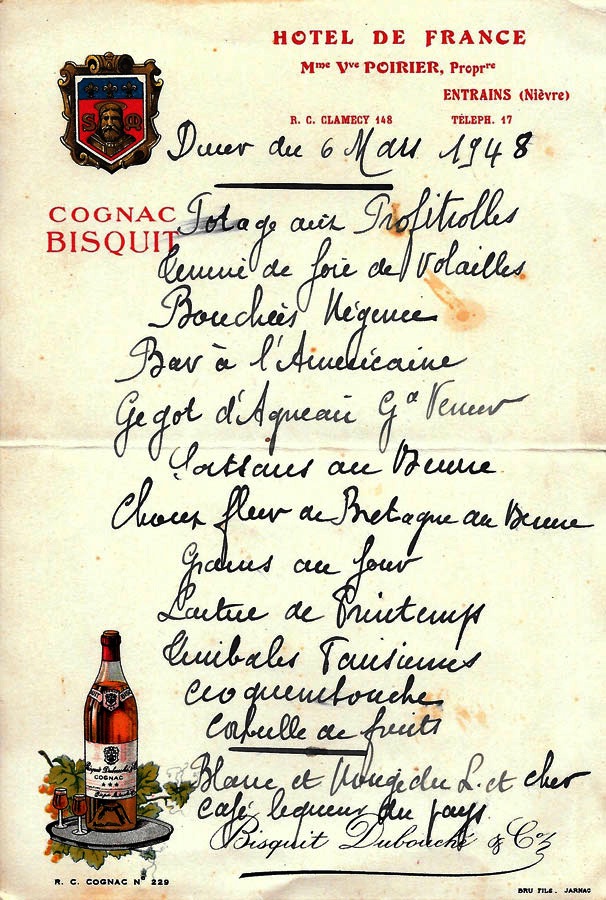 HOTEL DE FRANCE
Mme Vve POIRIER, Proprre
ENTRAINS (Nièvre)
R. C. CLAMECY 148 TÉLEPH. 17
S M
Diner du 6 Mars 1948
COGNAC
BISQUIT
Potage aux Profitrolles
Terrine de foie de Volailles
Bouchées Régence
Bar à l'Américaine
Gigot d'Agneau Gd Veneur
au Beurre
Choux fleur de Bretagne au Beurre
au four
Laitue de Printemps
Timbales Parisiennes
Croquembouche
Corbeille de fruits
Blanc et Rouge du L. et Cher
café liqueur du pays
Bisquit Dubouché & Co
COGNAC
R. C. COGNAC No 229
BRU FILS. JARNAC